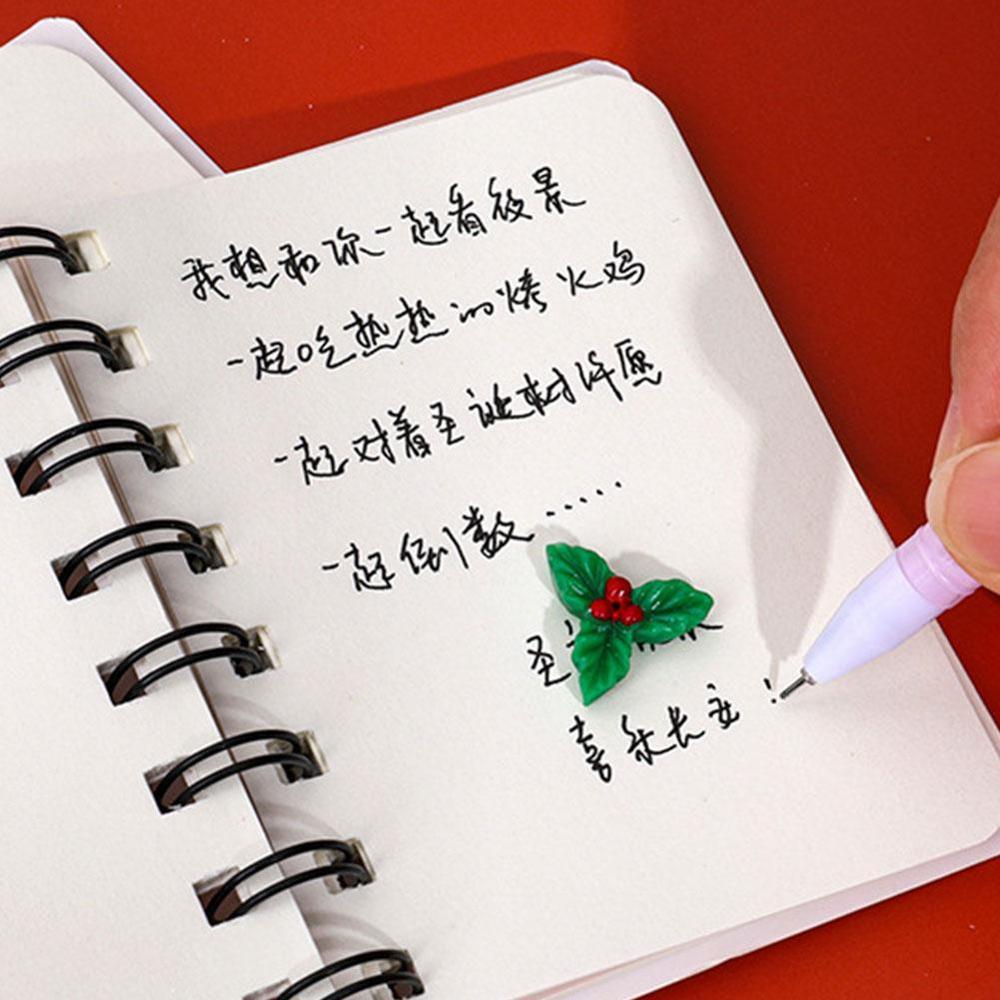 我想和你一起看夜景
一起吃热热的烤火鸡
一起对着圣诞树许愿
一起倒数......
圣
喜乐长安!